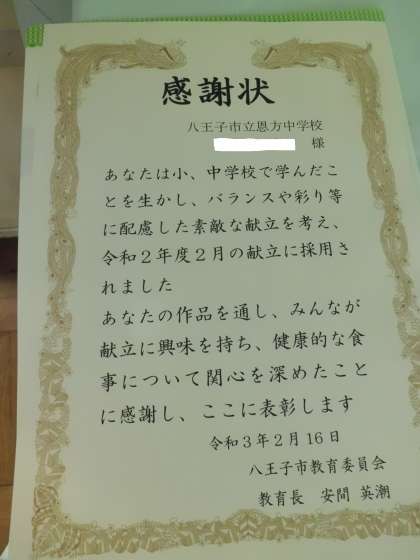 感謝状
八王子市立恩方中学校
様
あなたは小、中学校で学んだこ
とを生かし、バランスや彩り等
に配慮した素敵な献立を考え、
令和２年度２月の献立に採用さ
れました
あなたの作品を通し、みんなが
献立に興味を持ち、健康的な食
事について関心を深めたこと
に感謝し、ここに表彰します
令和３年２月１６日
八王子市教育委員会
教育長　安間　英潮